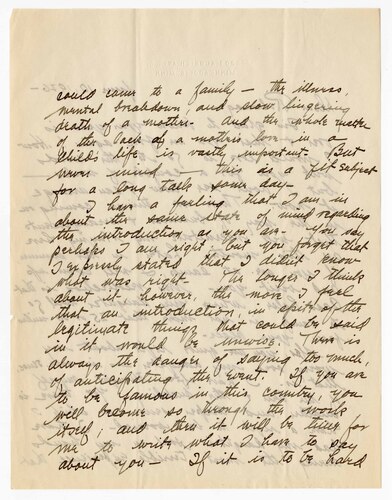 could come to a family — the illness,
mental breakdown, and slow lingering
death of a mother - and the whole matter
of the lack of a mother's love in a
child's life is vastly important - But
never mind — this is a fit subject
for a long talk some day -
I have a feeling that I am in
about the same state of mind regarding
the introduction as you are - You say
perhaps I am right; but you forget that
I expressly stated that I didn't know
what was right - The longer I think
about it however, the more I feel
that an introduction, in spite of the
legitimate things that could be said
in it would be unwise. There is
always the danger of saying too much,
of anticipating the event. If you are
to be famous in this country, you
will become so through the work
itself; and then it will be time for
me to write what I have to say
about you — If it is to be hard